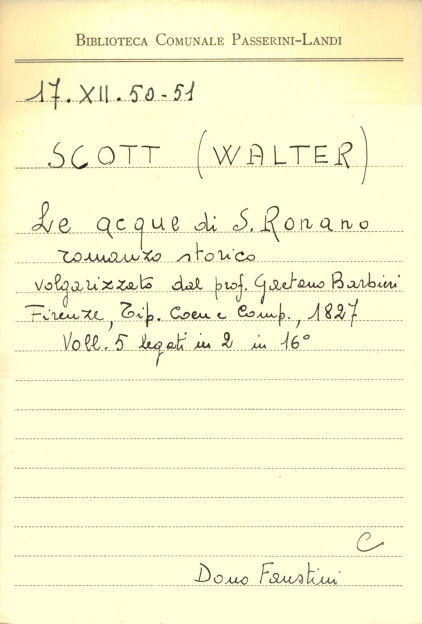 BIBLIOTECA COMUNALE PASSERINI-LANDI
17. XII. 50-51
SCOTT (WALTER)
Le acque di S. Ronano
romanzo storico
volgarizzato dal prof. Gaetano Barbieri
Firenze, Tip. Coen e Comp., 1827
Voll. 5 legati in 2 in 16°
C
Dono Faustini